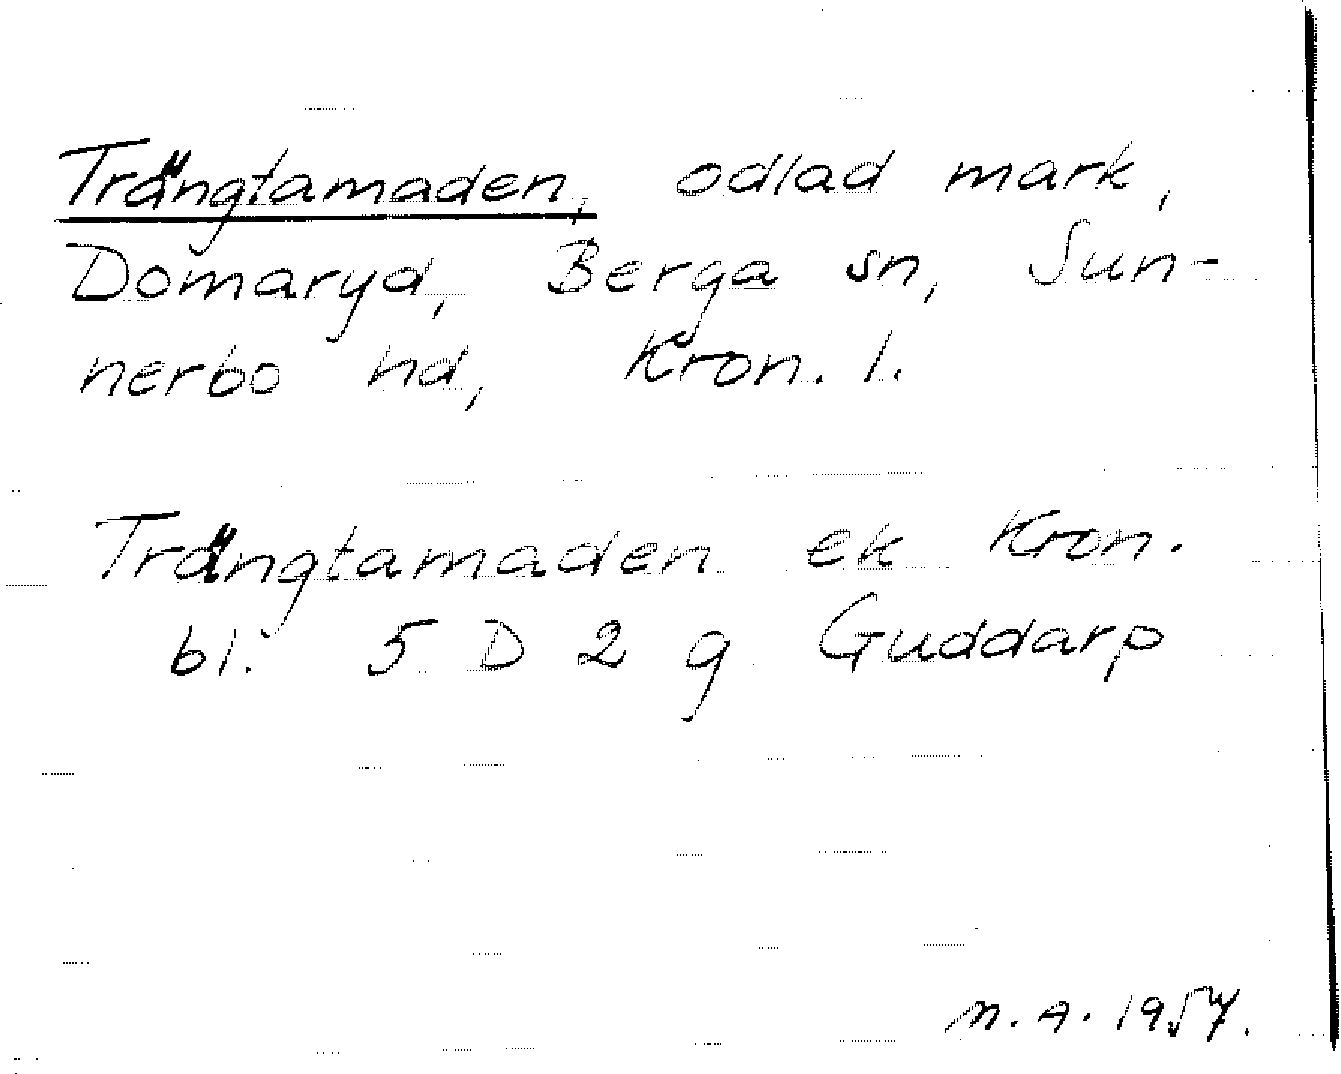 Trängtamaden, odlad mark,
Domaryd, Berga sn, Sun-
nerbo hd, Kron. l.
Trängtamaden ek Kron.
bl. 5 D 2 g Guddarp
M. A. 1957.